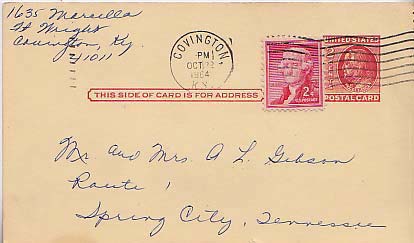 1635 Marsella
Ft Wright
Covington, Ky.
41011
COVINGTON
PM
OCT 22
1964
KY.
2¢
U.S. POSTAGE
UNITED STATES
POSTAL CARD
THIS SIDE OF CARD IS FOR ADDRESS
Mr. and Mrs. A L. Gibson
Route 1
Spring City, Tennessee